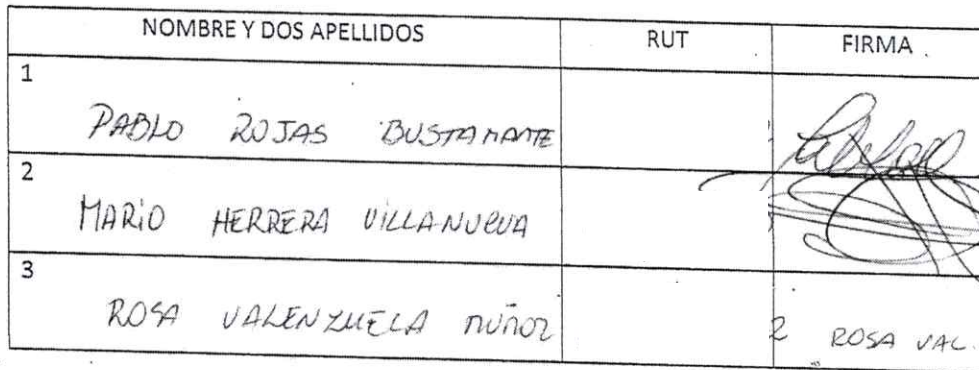 NOMBRE Y DOS APELLIDOS RUT FIRMA
1
PABLO ROJAS BUSTAMANTE
2
MARIO HERRERA VILLANUEVA
3
ROSA VALENZUELA MUÑOZ 2 ROSA VAL.